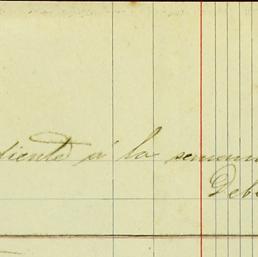 diente á la semana
Deb